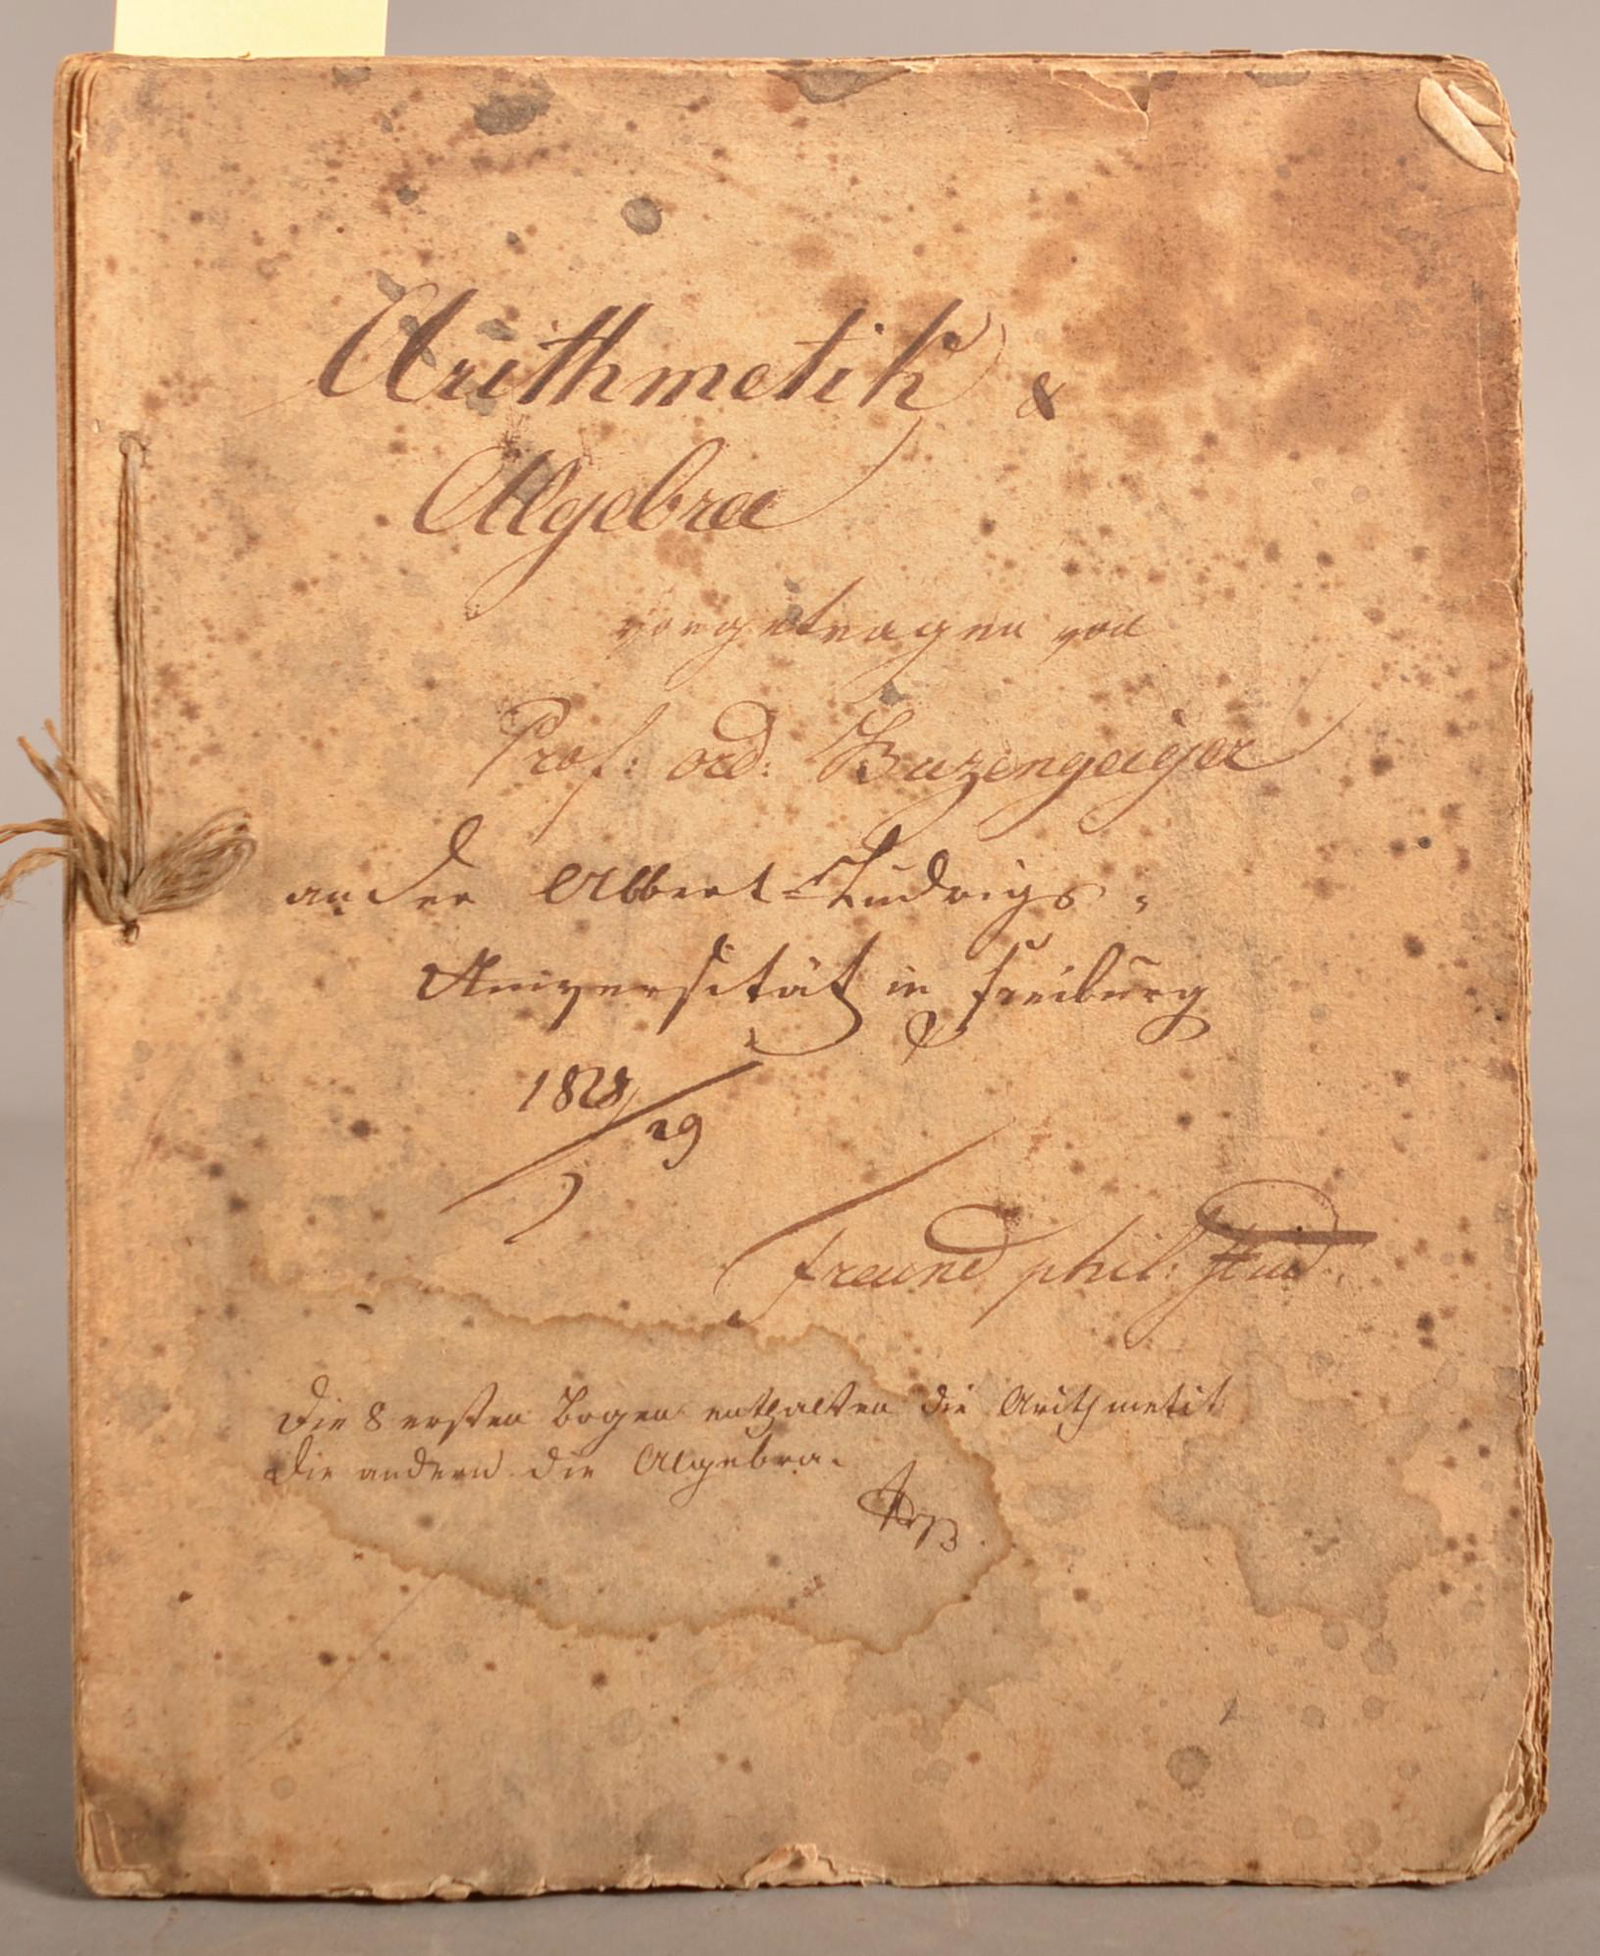 Arithmetik &
Algebra
vorgetragen von
Prof: ord: Buzengeiger
an der Albert-Ludwigs-
Universität in Freiburg
1828/29
Freund phil: Stud.
Die 8 ersten Bogen enthalten die Arithmetik
Die andern die Algebra.